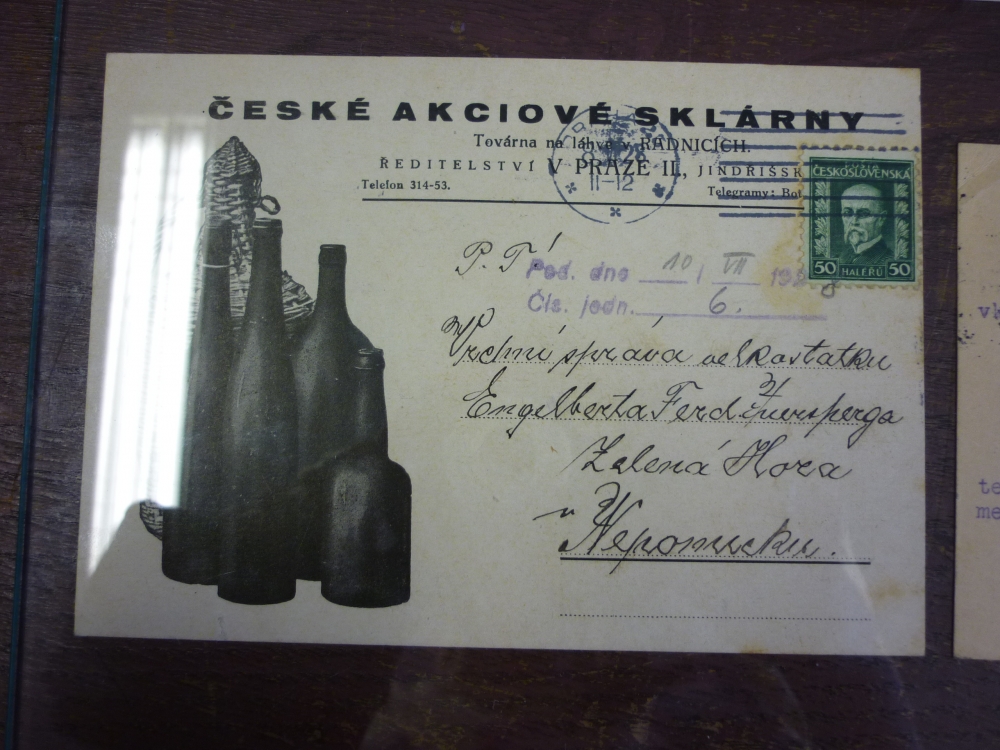 ČESKÉ AKCIOVÉ SKLÁRNY
Továrna na láhve v RADNICÍCH.
ŘEDITELSTVÍ V PRAZE II., JINDŘIŠSK
Telefon 314-53.
Telegramy: Rot
11-12
ČESKOSLOVENSKÁ
50 HALÉŘŮ 50
P. T.
Pod. dne 10 / VII 192
Čís. jedn. 6.
Vrchní správa velkostatku
Engelberta Ferd
Zelená Hora
u Nepomucku.
te
me